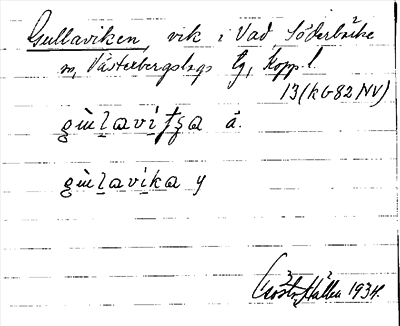 Gullaviken, vik i Vad, Söderbärke
sn, Västerbergslags tg, Kopp. l.
13 (kG82 NV)
gùlavitʂa ä.
gùlavika y
Gösta Hållén 1934.